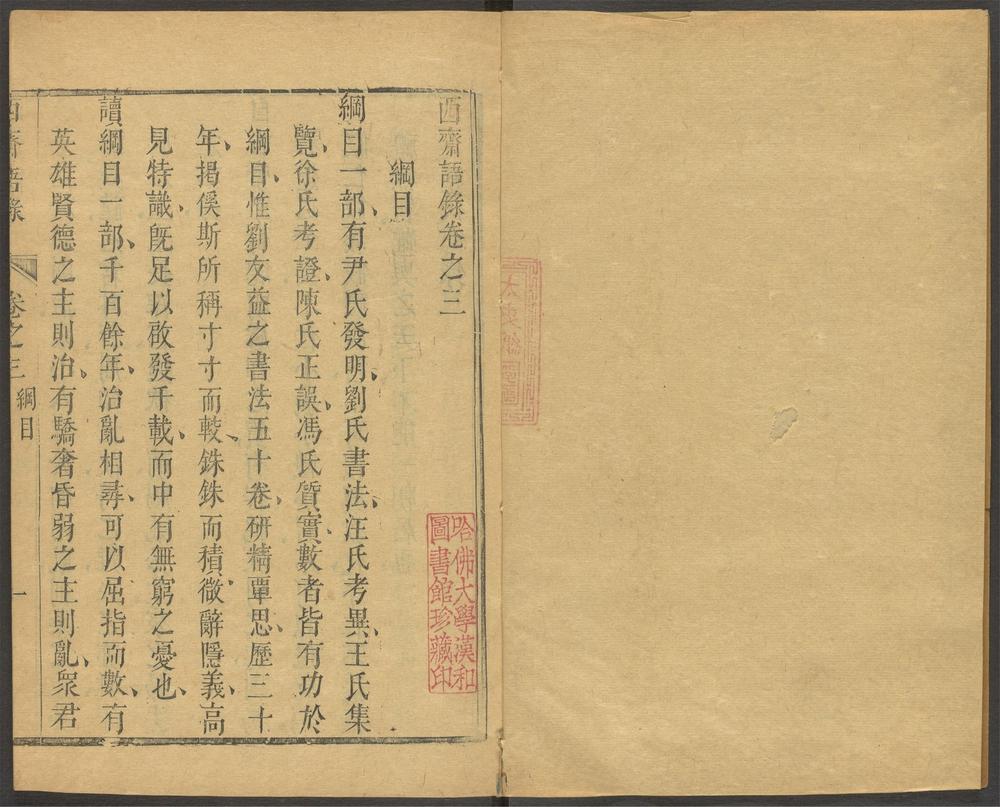 西齋語錄卷之三
綱目
綱目一部、有尹氏發明、劉氏書法、汪氏考異、王氏集
覽、徐氏考證、陳氏正誤、馮氏質實、數者皆有功於
綱目、惟劉友益之書法五十卷、研精覃思、歷三十
年、揭傒斯所稱寸寸而較、銖銖而積、微辭隱義、高
見特識、旣足以啟發千載、而中有無窮之憂也、
讀綱目一部、千百餘年、治亂相尋、可以屈指而數、有
英雄賢德之主則治、有驕奢昏弱之主則亂、眾君
西齋語錄
卷之三 綱目
一
哈佛大學漢和
圖書館珍藏印